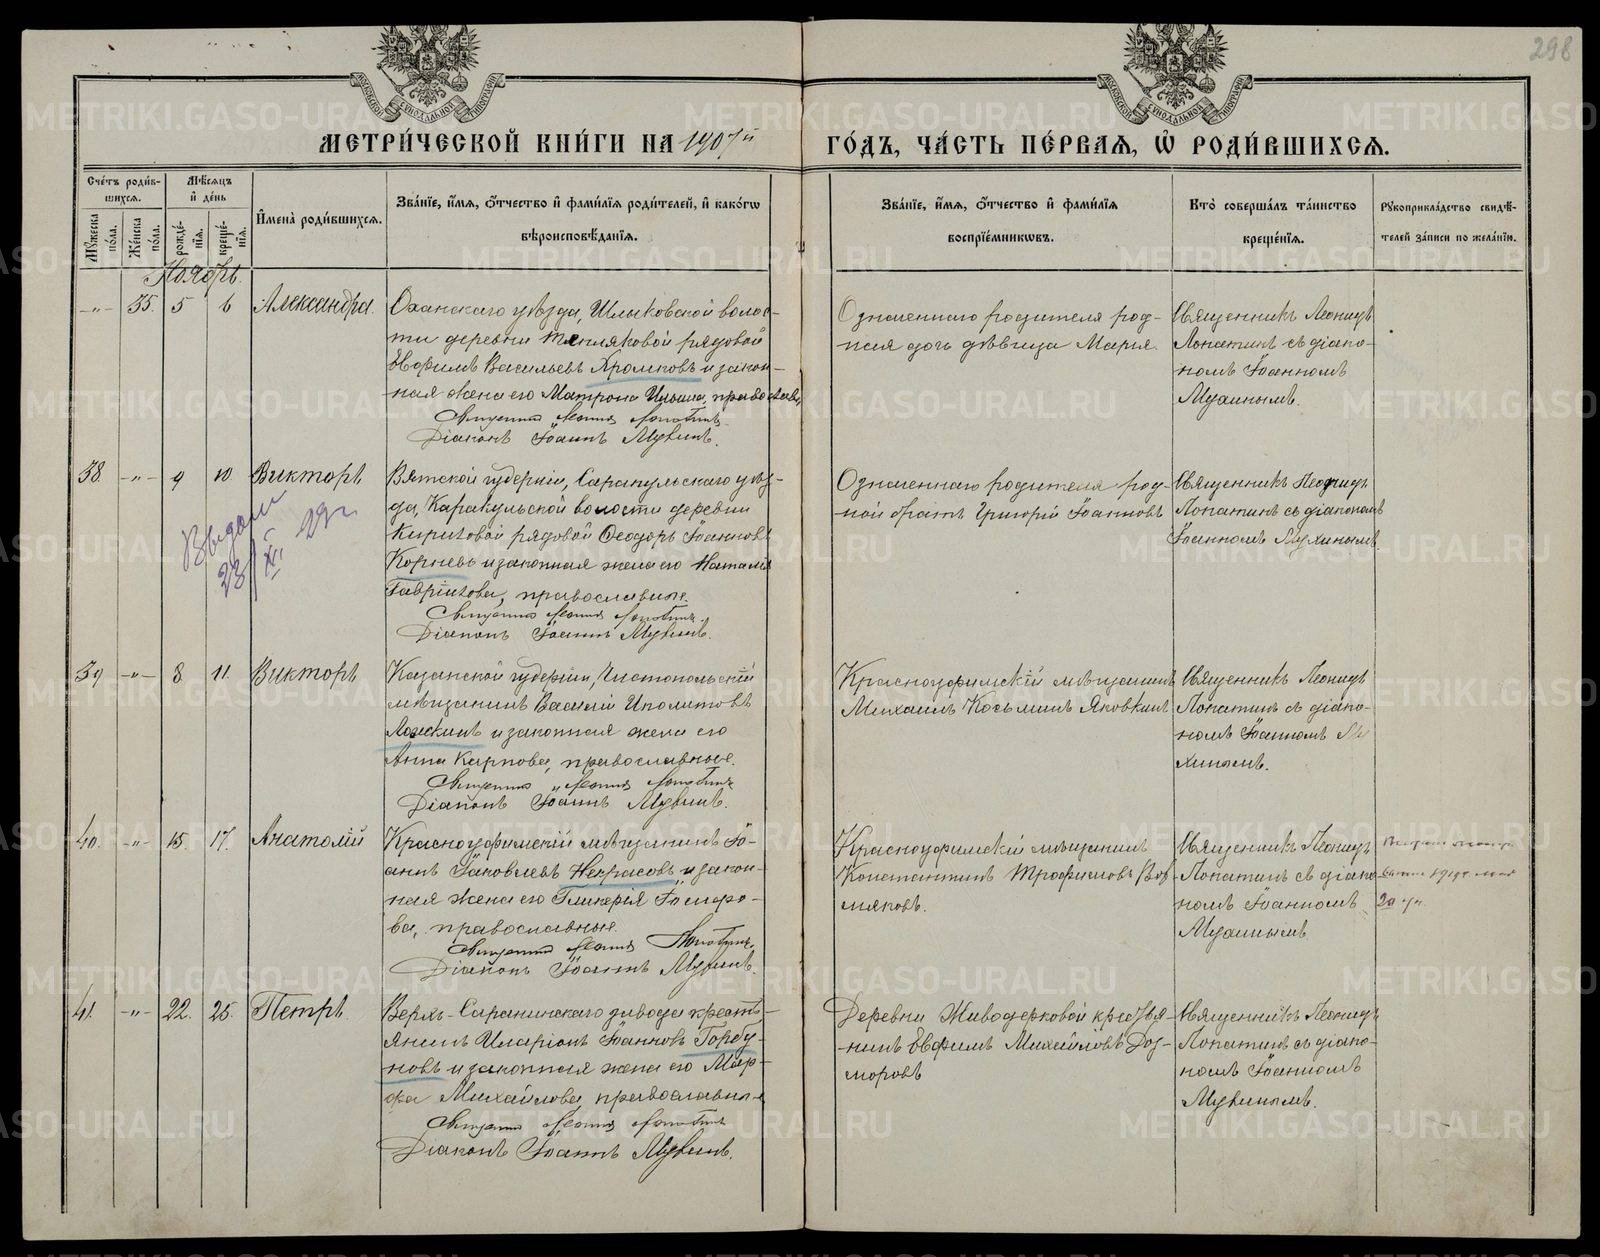 298
МЕТРИ́ЧЕСКОЙ КНИ́ГИ НА 1907й ГО́ДЪ, ЧА́СТЬ ПЕ́РВАѦ, Ѡ҆ РОДИ́ВШИХСѦ.
Сче́тъ роди́в-
шихся.
Мѣ́сяцъ
и҆ де́нь
Мꙋ́жеска по́ла.
Же́нска по́ла.
рожде́-нїѧ.
креще́-нїѧ.
И҆мена̀ роди́вшихсѧ.
Зва́нїе, и҆́мѧ, ѻ҆́тчество и҆ фами́лїѧ роди́телей, и҆ како́гѡ
вѣроисповѣ́данїѧ.
Зва́нїе, и҆́мѧ, ѻ҆́тчество и҆ фами́лїѧ
воспрїе́мникѡвъ.
Кто̀ соверша́лъ та́инство
креще́нїѧ.
Рꙋкоприкла́дство свидѣ́-
телей за́писи по жела́нїю.
Ноябрь.
-"- 35. 5 6 Александра.
Оханскаго уѣзда, Шлыковской волос-
ти деревни Тепляковой рядовой
Евфимъ Васильевъ Хромцовъ и закон-
ная жена его Матрона Ильина, православн.
Священникъ Леонидъ Лопатинъ.
Діаконъ Іоаннъ Мухинъ.
Означеннаго родителя род-
ная дочь дѣвица Марія.
Священникъ Леонидъ
Лопатинъ съ діако-
номъ Іоанномъ
Мухинымъ.
38. -"- 9 10 Викторъ
Выдана
23/XI 29 г.
Вятской губерніи, Сарапульскаго уѣз-
да, Каракульской волости деревни
рядовой Ѳеодоръ Іоанновъ
Корневъ и законная жена его Наталія
Гаврилова, православные.
Священникъ Леонидъ Лопатинъ.
Діаконъ Іоаннъ Мухинъ.
Означеннаго родителя род-
ной братъ Григорій Іоанновъ
Священникъ Леонидъ
Лопатинъ съ діакономъ
Іоанномъ Мухинымъ.
39 -"- 8 11. Викторъ
Казанской губерніи, Чистопольскій
мѣщанинъ Василій Иполитовъ
Ложкинъ и законная жена его
Анна Карпова, православные.
Священникъ Леонидъ Лопатинъ
Діаконъ Іоаннъ Мухинъ.
Красноуфимскій мѣщанинъ
Михаилъ Косьминъ Яковкинъ
Священникъ Леонидъ
Лопатинъ съ діако-
номъ Іоанномъ Му
хинымъ.
40. -"- 15. 17. Анатолій
Красноуфимскій мѣщанинъ Іо-
аннъ Іаковлевъ Некрасовъ и закон-
ная жена его Гликерія
ва, православные.
Священникъ Леонидъ Лопатинъ.
Діаконъ Іоаннъ Мухинъ.
Красноуфимскій мѣщанинъ
Константинъ Трофимовъ
Священникъ Леонидъ
Лопатинъ съ діако-
номъ Іоанномъ
Мухинымъ
41. -"- 22. 25. Петръ
Верхъ-Саранинскаго завода кресть-
янинъ Иларіонъ Іоанновъ Горбу-
новъ и законная жена его Мар-
фа Михайлова православны-е
Священникъ Леонидъ Лопатинъ
Діаконъ Іоаннъ Мухинъ.
Деревни Живодерковой крестья-
-нинъ Евфимъ Михайловъ Доз-
моровъ
Священникъ Леонидъ
Лопатинъ съ діако-
номъ Іоанномъ
Мухинымъ.
METRIKI.GASO-URAL.RU